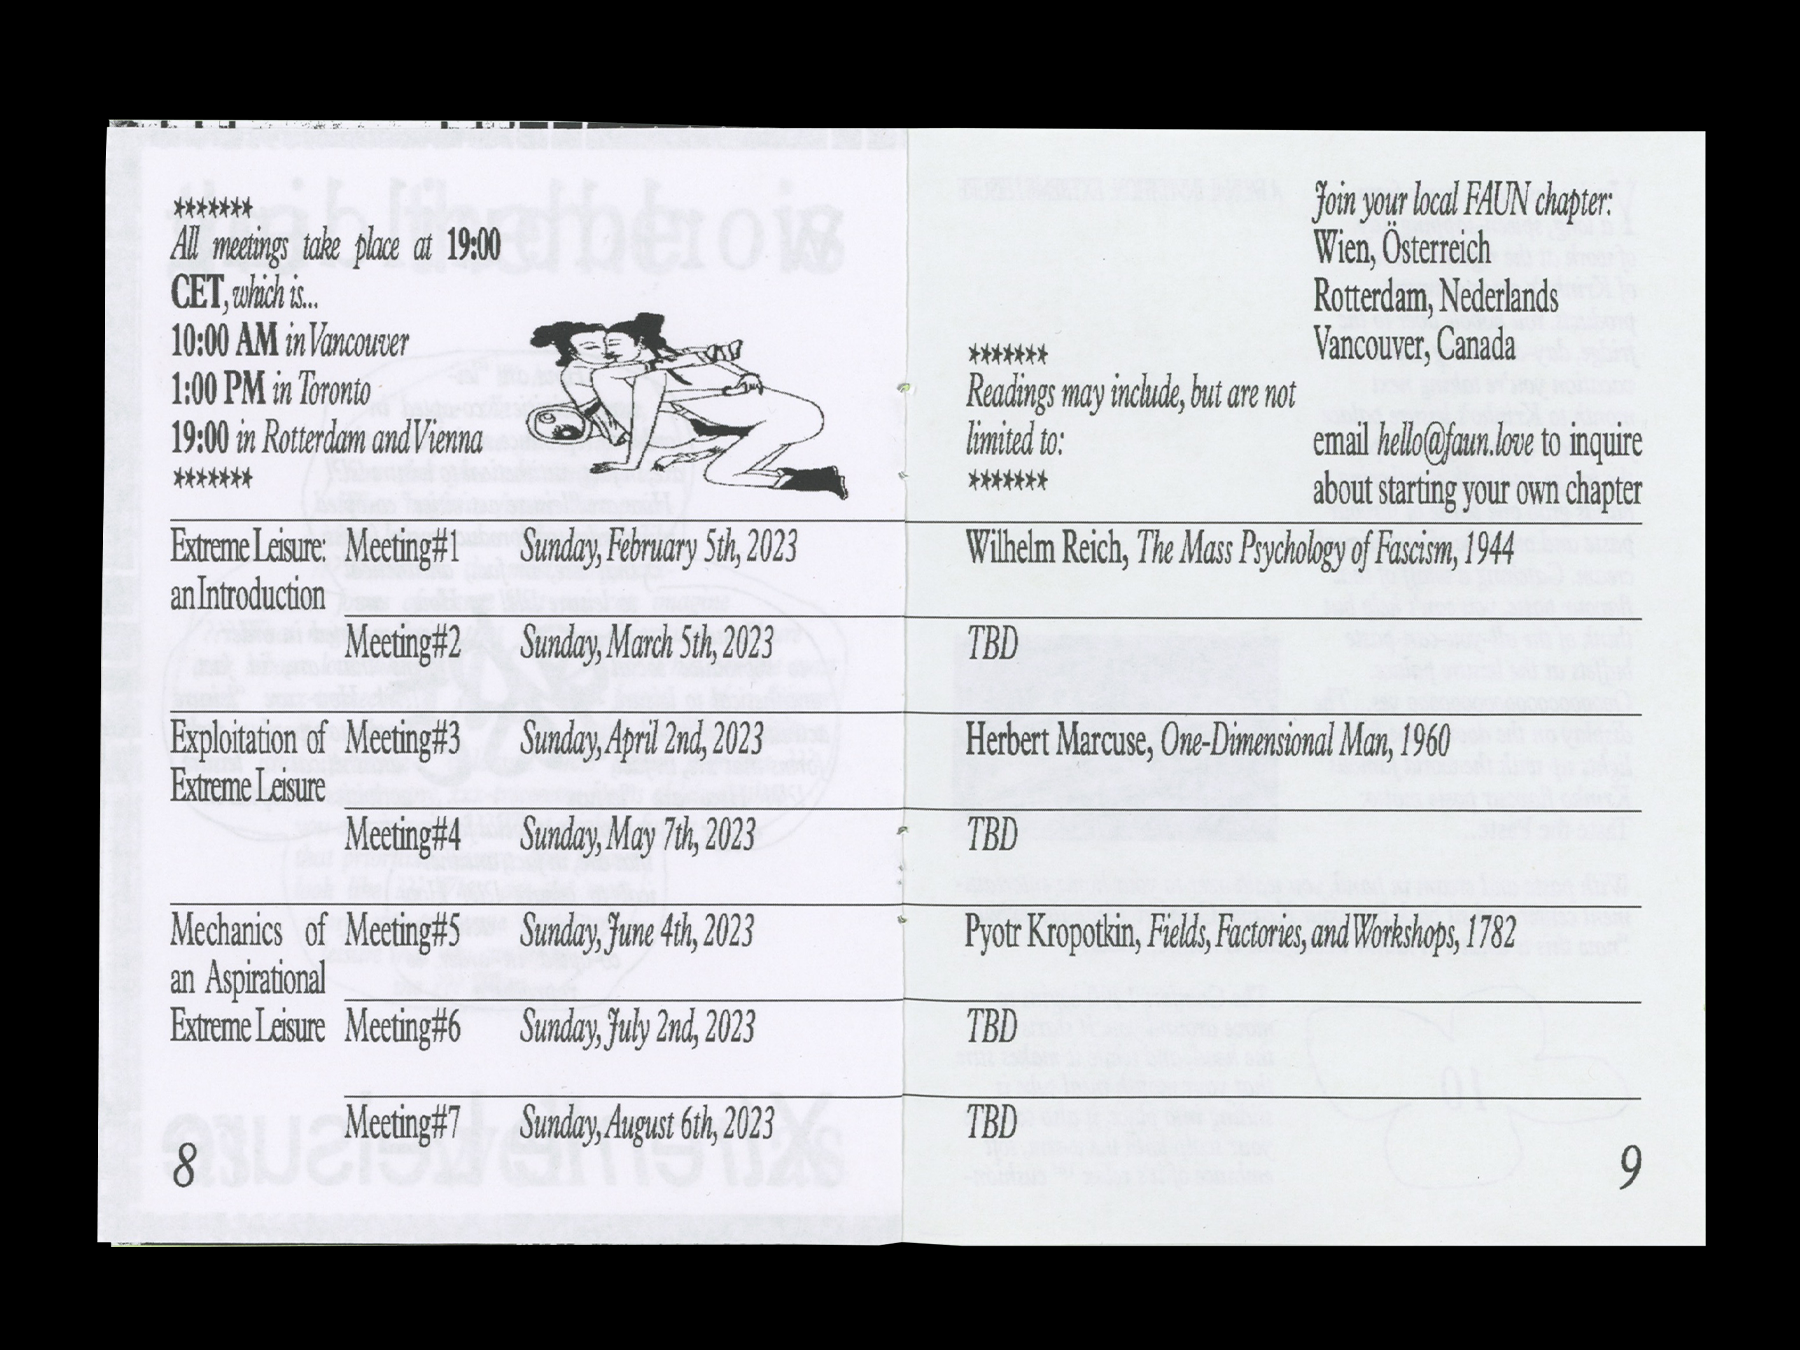 *******
All meetings take place at 19:00
CET, which is...
10:00 AM in Vancouver
1:00 PM in Toronto
19:00 in Rotterdam and Vienna
*******
Extreme Leisure; Meeting#1 Sunday, February 5th, 2023
an Introduction
Meeting#2 Sunday, March 5th, 2023
Exploitation of Meeting#3 Sunday, April 2nd, 2023
Extreme Leisure
Meeting#4 Sunday, May 7th, 2023
Mechanics of Meeting#5 Sunday, June 4th, 2023
an Aspirational
Extreme Leisure Meeting#6 Sunday, July 2nd, 2023
Meeting#7 Sunday, August 6th, 2023
8
Join your local FAUN chapter:
Wien, Österreich
Rotterdam, Nederlands
Vancouver, Canada
email hello@faun.love to inquire
about starting your own chapter
*******
Readings may include, but are not
limited to:
*******
Wilhelm Reich, The Mass Psychology of Fascism, 1944
TBD
Herbert Marcuse, One-Dimensional Man, 1960
TBD
Pyotr Kropotkin, Fields, Factories, and Workshops, 1782
TBD
TBD
9